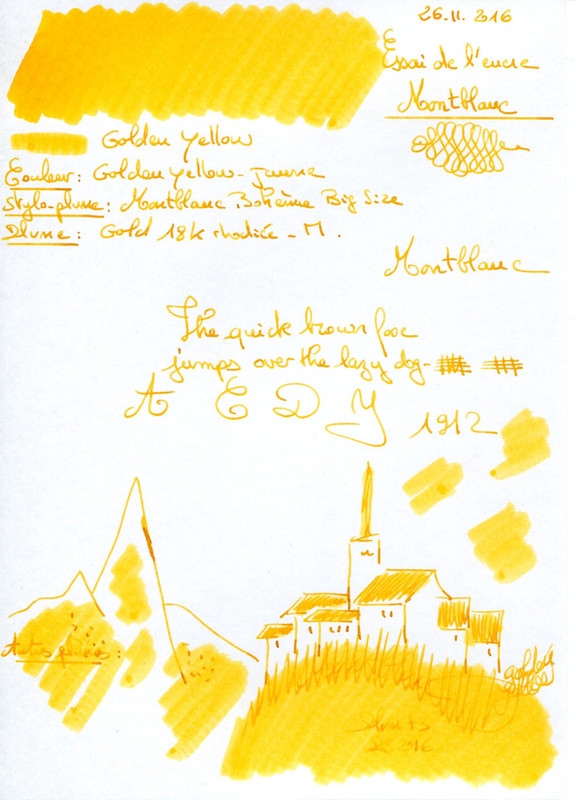 26.11.2016
Essai de l'encre
Montblanc
Golden Yellow
Couleur: Golden Yellow - jaune
Stylo-plume: Montblanc Bohème Big Size
Plume: Gold 18k rhodiée - M.
Montblanc
The quick brown fox
jumps over the lazy dog-
A E D Y 1912
Autres
2016